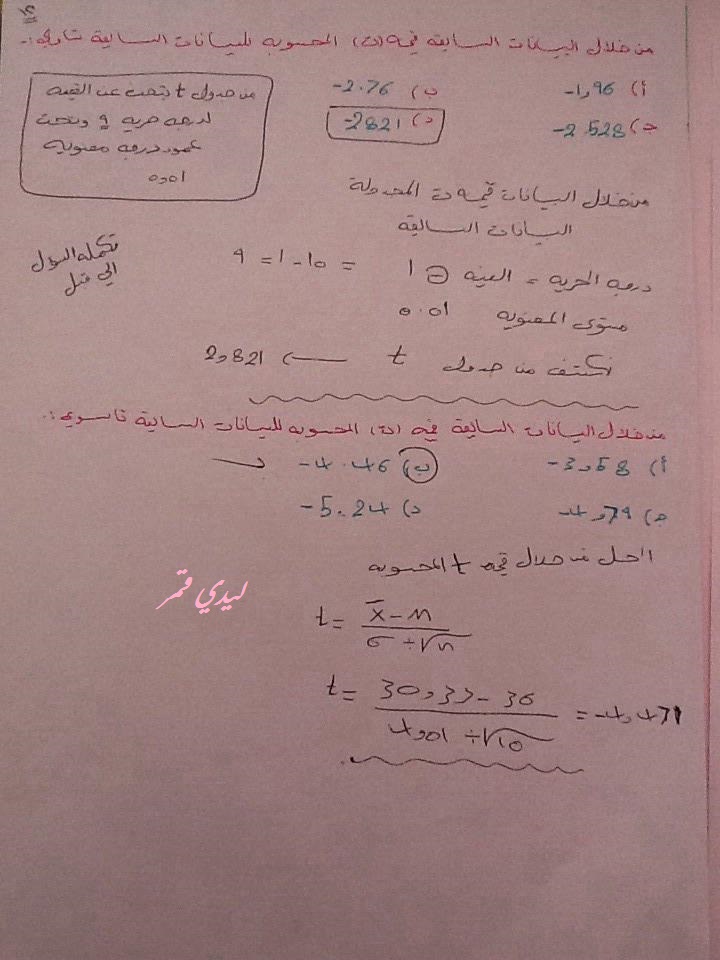 من خلال البيانات السابقة قيمة (ت) المحسوبة للبيانات السابقة تساوي:
أ) -1,96
ب) -2.76
ج) -2.528
د) -2821
من جدول t نبحث عن القيمة
لدرجه حريه 9 وتحت
عمود درجه معنويه
0,01
من خلال البيانات قيمه ت المجدولة
البيانات السابقة
درجه الحريه = العينه - 1 = 10 - 1 = 9
مستوى المعنويه 0.01
نكشف من جدول t ← 2,821
تكمله السؤال
الي قبل
من خلال البيانات السابقة قيمة (ت) المحسوبه للبيانات السابقة تساوي:
أ) -3,58
ب) -4.46
ج) -4,79
د) -5.24
الحل من خلال قيمه t المحسوبه
t = x̄ - M / σ ÷ √n
t = 30,33 - 36 / 4,01 ÷ √10 = -4,471
ليدي قمر